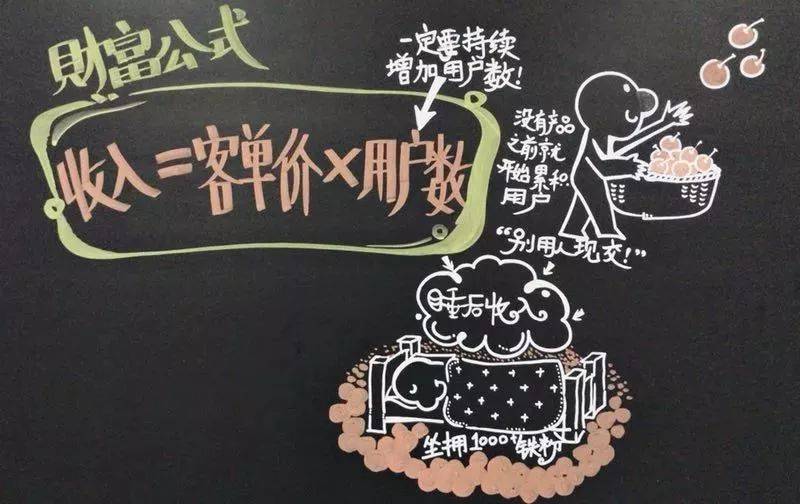 財富公式
一定要持续
增加用户数!
收入=客单价×用户数
没有产品
之前就
开始累积
用户
“别用人现交!”
睡后收入
坐拥1000+铁粉